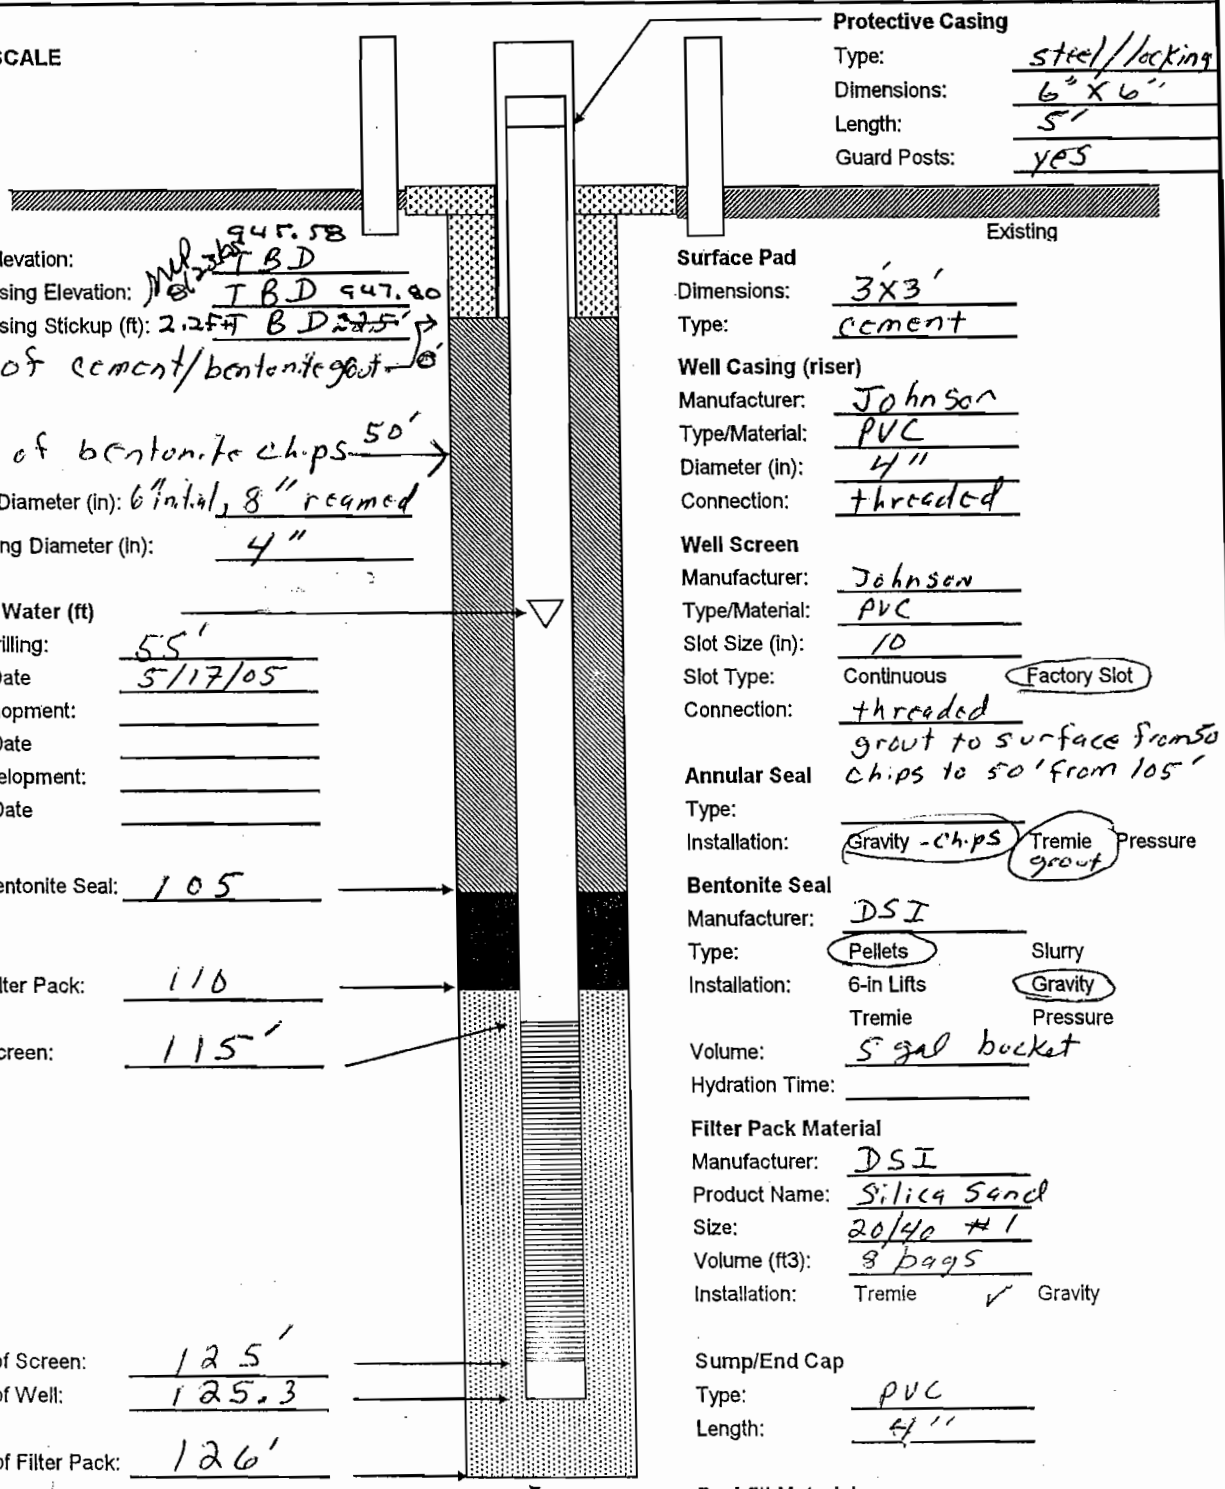 SCALE
Protective Casing
Type: steel/locking
Dimensions: 6" X 6"
Length: 5'
Guard Posts: yes
Existing
945.58
levation: TBD
8/23/05
sing Elevation: TBD 947.80
sing Stickup (ft): 2.2ft TBD 2.25'
of cement/bentonite grout 0'
of bentonite chips 50'
Diameter (in): 6" initial, 8" reamed
ng Diameter (in): 4"
Water (ft)
rilling: 55'
Date 5/17/05
lopment:
Date
elopment:
Date
entonite Seal: 105
lter Pack: 110
creen: 115'
of Screen: 125'
of Well: 125.3
of Filter Pack: 126'
Surface Pad
Dimensions: 3'X3'
Type: cement
Well Casing (riser)
Manufacturer: Johnson
Type/Material: PVC
Diameter (in): 4"
Connection: threaded
Well Screen
Manufacturer: Johnson
Type/Material: PVC
Slot Size (in): 10
Slot Type: Continuous Factory Slot
Connection: threaded
grout to surface from 50
Annular Seal chips to 50' from 105'
Type:
Installation: Gravity - chips Tremie Pressure
grout
Bentonite Seal
Manufacturer: DSI
Type: Pellets Slurry
Installation: 6-in Lifts Gravity
Tremie Pressure
Volume: 5 gal bucket
Hydration Time:
Filter Pack Material
Manufacturer: DSI
Product Name: Silica Sand
Size: 20/40 #1
Volume (ft3): 8 bags
Installation: Tremie ✓ Gravity
Sump/End Cap
Type: PVC
Length: 4"